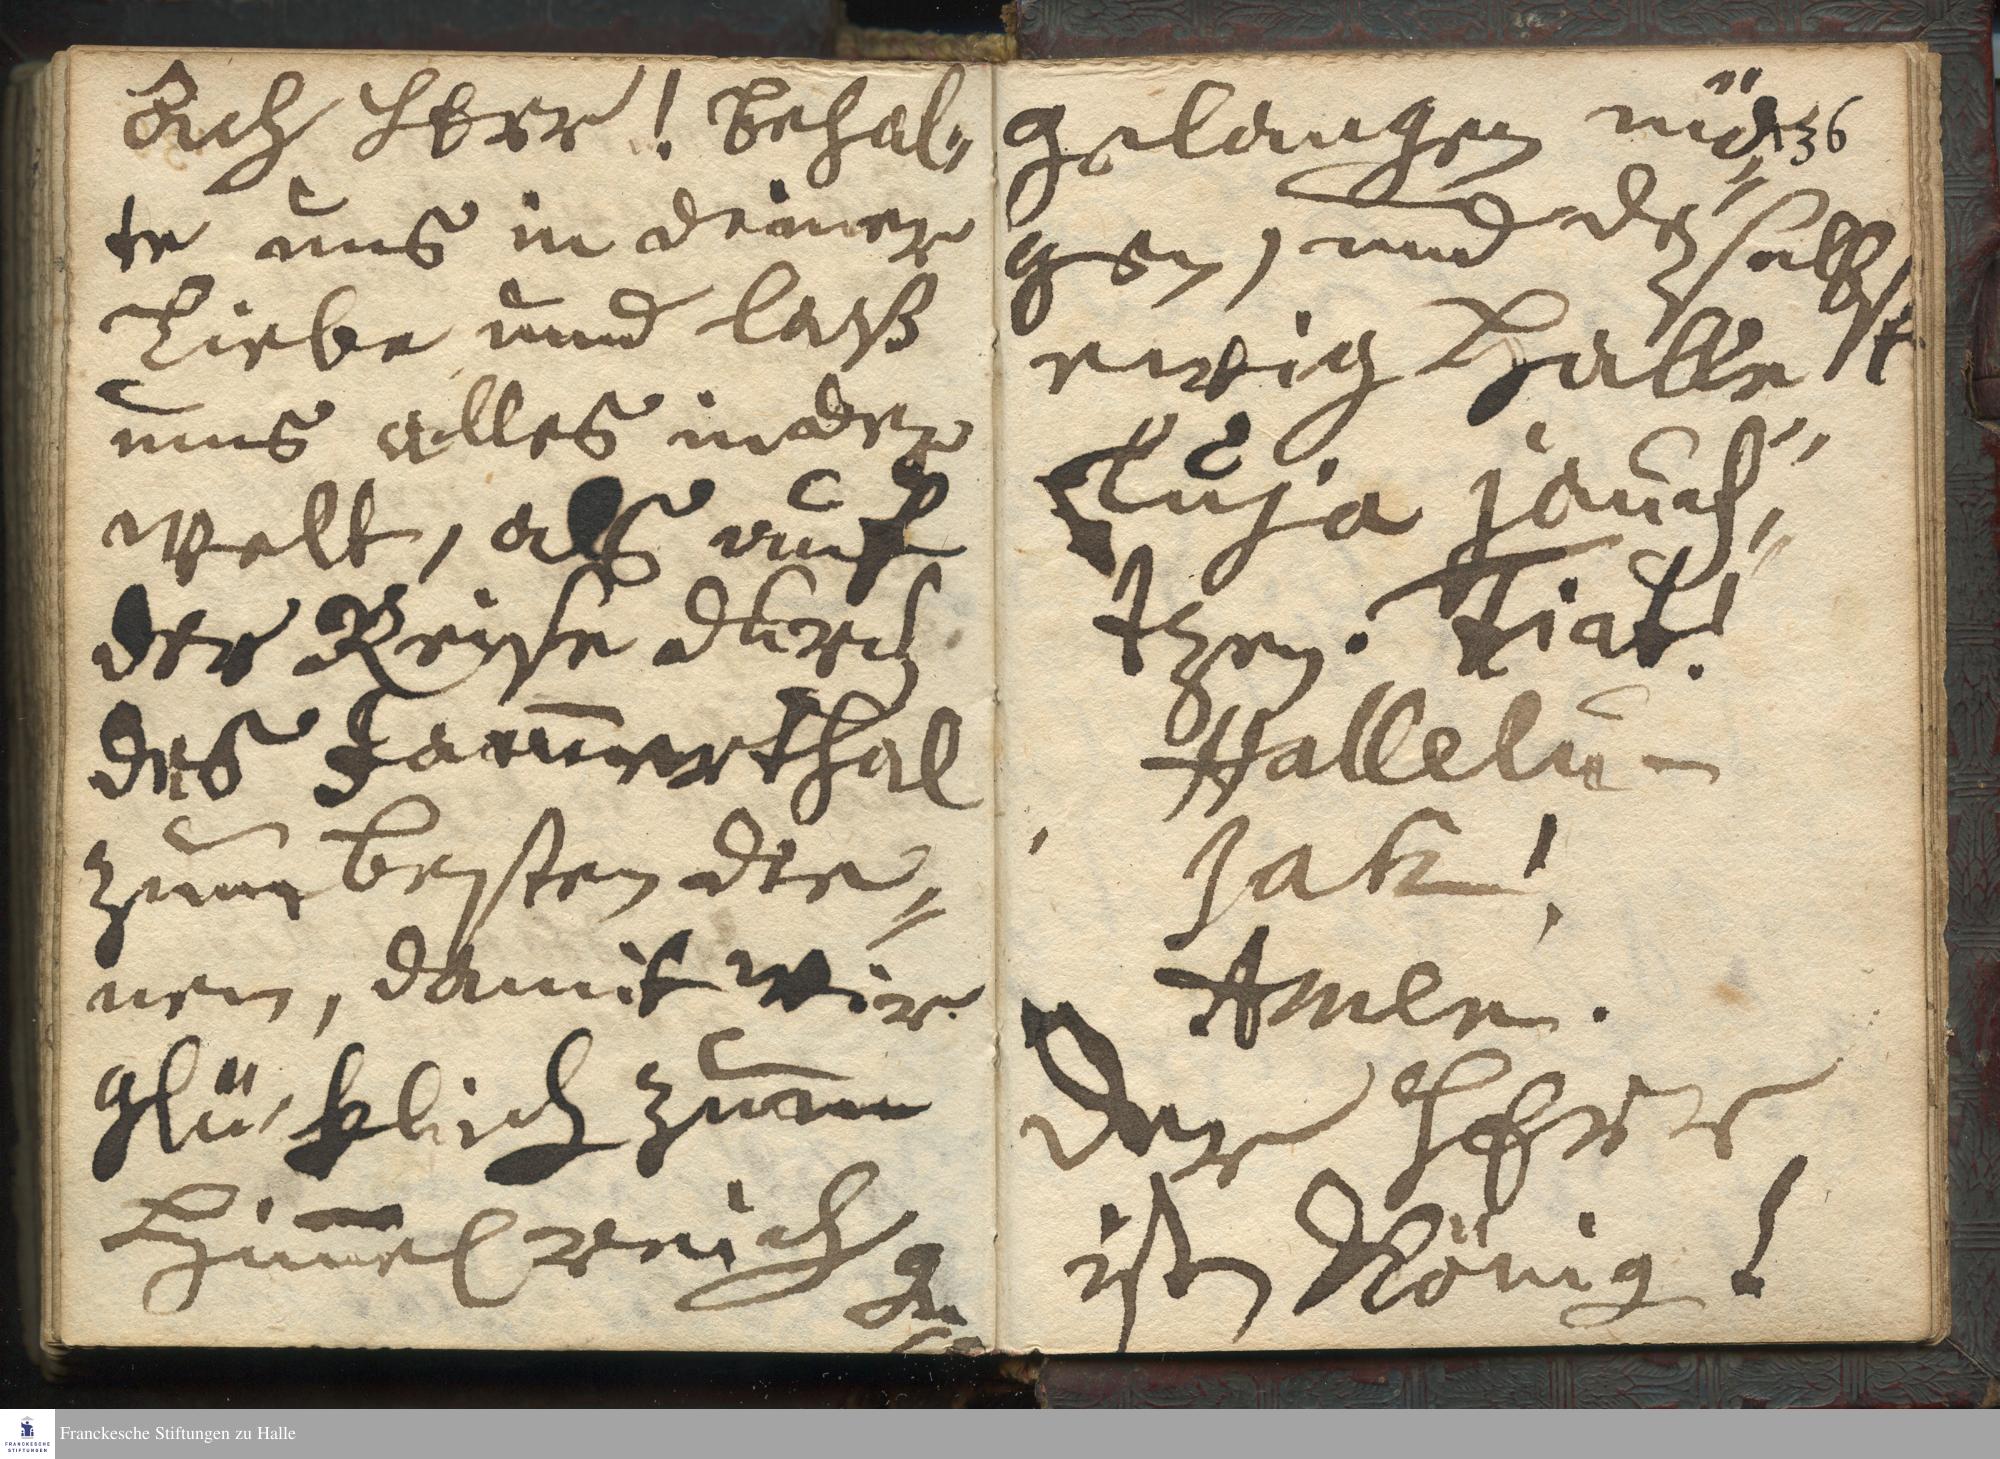 Ach HErr! Behal-
te uns in deiner
Liebe und laß
uns alles in der
Welt, als auf
der Reise durch
das Jam̅erthal
zum besten die-
nen, damit wir
glücklich zum
Him̅elreich
ge
la
gelangen mö- 136
gen, und daselbst
ewig Halle
luja jauch-
tzen. Fiat!
Hallelu-
jah!
Amen.
Der HErr
ist König!
FRANCKESCHE
STIFTUNGEN
Franckesche Stiftungen zu Halle